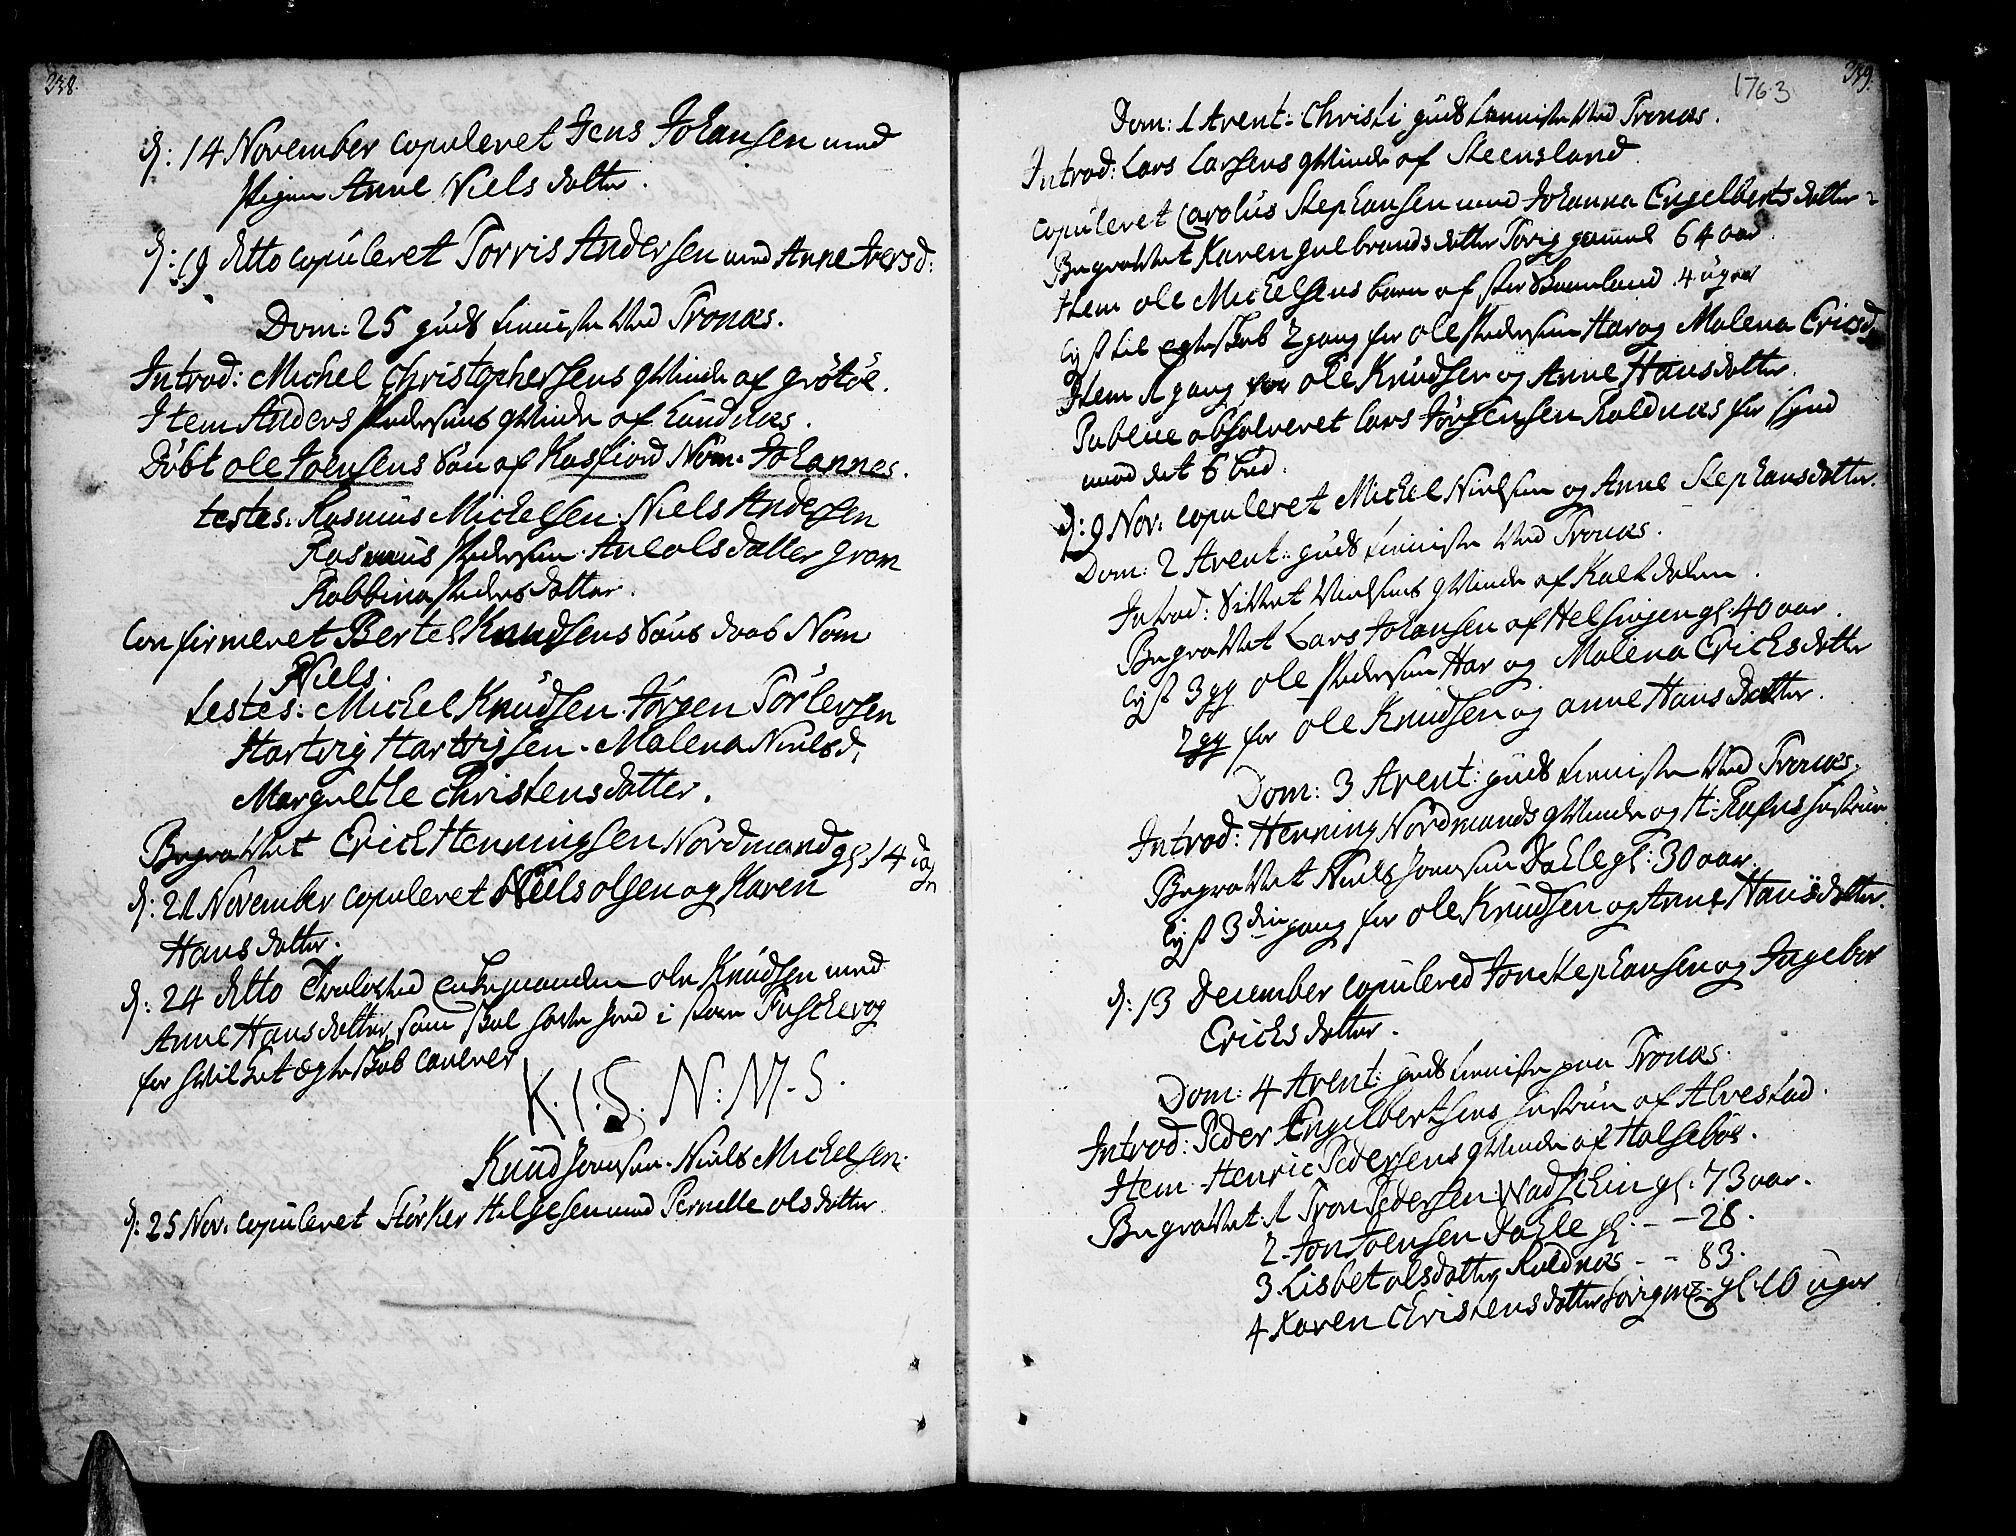 238.
d: 14 November copuleret Jens Johansen med
Pigen Anne Niels datter.
d: 19 ditto copuleret Torris Andersen med Anne Iversd:
Dom: 25 guds tieniste ved Tronæs.
Introd: Michel Christophersens qvinde af grötöe.
Item Anders Pedersens qvinde af Sandnæs.
Döbt ole Joensens Sön af Kasfiord Nom. Johannes.
testes. Rasmus Michelsen. Niels Andersen
Rasmus Pedersen. Ane olsdatter gram
Robbina Peders datter.
Confirmeret Bertel Knudsens Söns daab Nom
Niels.
testes: Michel Knudsen. Jörgen Törlersen
Hartvig Hartvigsen. Malena Nielsd.
Margrethe Christensdatter.
Begravet Erich Henningsen Nordmand gl. 14 dage
d: 21 November copuleret Niels olsen og Karen
Hans datter.
d: 24 ditto Trolovted Enkemanden ole Knudsen med
Anne Hans datter, som skal have Jord i store Fuskevog
for hvilket Egteskab caverer
K. I. S. N: M. S.
Knud Jonsen. Niels Michelsen.
d: 25 Nov. copuleret Störker Helgesen med Pernille olsdatter.
1763
239.
Dom: 1 Avent: Christi guds tienniste ved Tronæs.
Introd: Lars Larsens qvinde af Steensland
copuleret Carolus Stephansen med Johanna Engelberts datter
Begravet Karen gulbrands datter Torig gammel 64 aar.
Item ole Michelsens barn af 4 uger
lyst til egteskab 2 gang for ole Pedersen Har og Malena Ericsd
Item 1 gang for ole Knudsen og Anne Hansdatter.
Publice absolveret Lars Jörgensen Roldnæs for synd
mod det 6 bud.
d: 9 Nov: copuleret Michel Nielsen og Anne Stephansdatter.
Dom: 2 Avent: guds tieniste ved Tronæs.
Introd: Sivert Nielsens qvinde af Kaltdalen.
Begravet Lars Johansen af Helsingen gl. 40 aar.
lyst 3 gg ole Pedersen Har og Malena Erichsdatter
2 gg for ole Knudsen og anne Hans datter.
Dom: 3 Avent: guds tieniste ved Tronæs.
Introd: Henning Nordmands qvinde og H: Rafns Hustrue
Begravet Niels Jonsen Dahle gl: 30 aar.
lyst 3die gang for ole Knudsen og Anne Hansdatter.
d: 13 December copulered Jon Stephansen og Ingebor
Erichsdatter.
Dom: 4 Avent: guds tieniste paa Tronæs.
Introd: Peder Engelbertsens hustrue af Alvestad.
Item Henric Pedersens qvinde af Halseböe.
Begravet: 1 Tron Pedersen Wadschin gl. 73 aar.
2. Jon Joensen Dahle gl: - - 28.
3. Lisbet olsdatter Roldnæs - - 83.
4 Karen Christensdatter gl 10 uger.